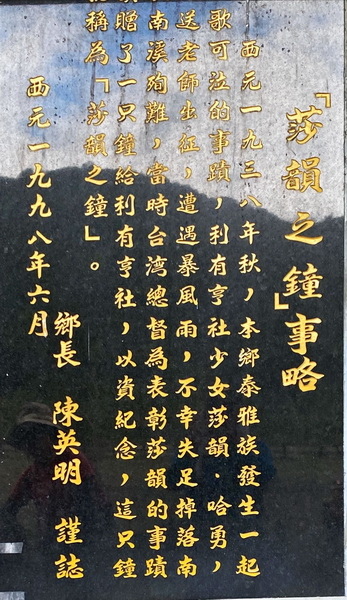 「莎韻之鐘」事略
西元一九三八年秋，本鄉泰雅族發生一起
歌可泣的事蹟，利有亨社少女莎韻．哈勇，
送老師出征，遭遇暴風雨，不幸失足掉落南
南溪殉難，當時台湾總督為表彰莎韻的事蹟
贈了一只鐘給利有亨社，以資紀念，這只鐘
稱為「莎韻之鐘」。
西元一九九八年六月
鄉長 陳英明 謹誌